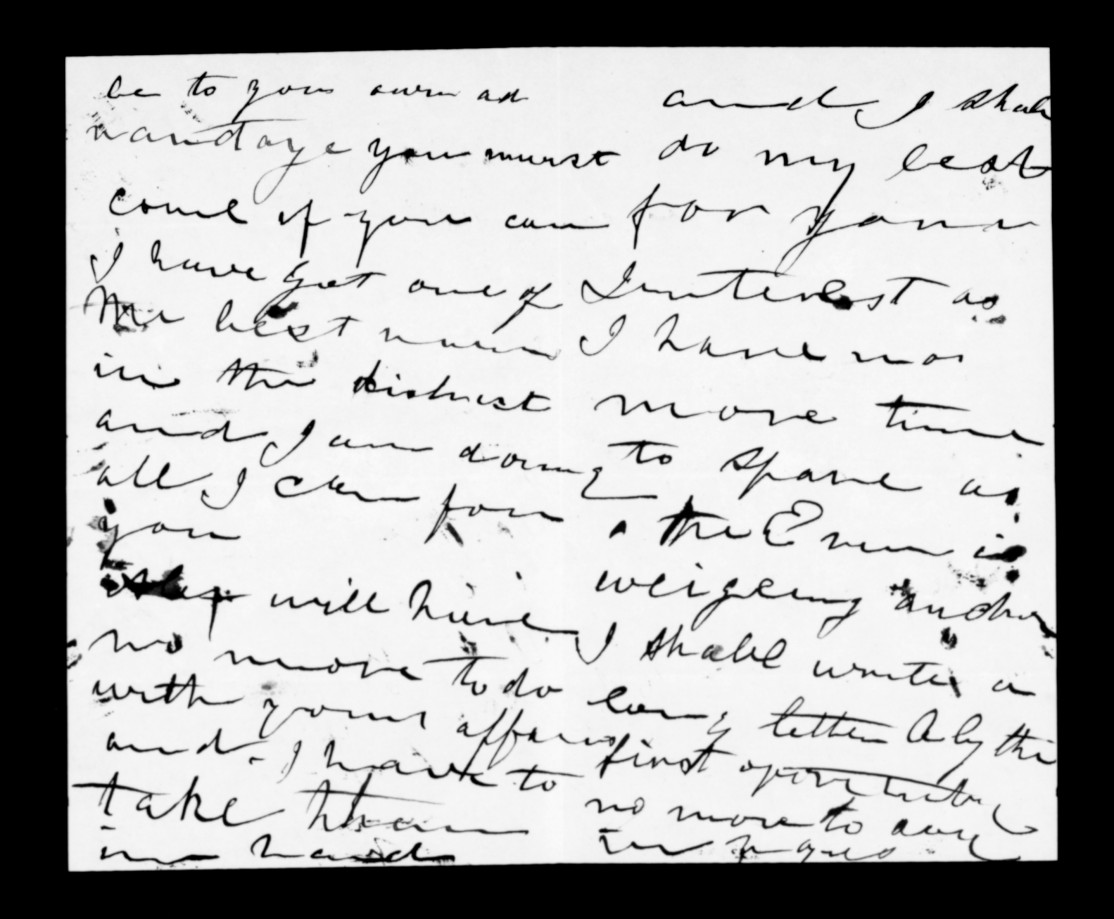 be to your own ad
vantage you must
come if you can
I have got one of
the best men
in the district
and I am doing
all I can for
you
will have
no more to do
with yours affairs
and I have to
take them
in hand
and I shall
do my best
for your
Interest as
I have no
more time
to spare as
the Emeu is
weigeing anchor
I shall write a
long letter by the
first oportunity
no more to